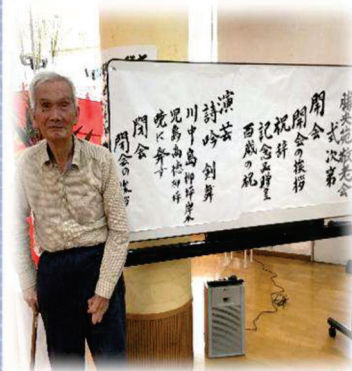 敬老会
式次第
開会
開会の挨拶
祝辞
記念品贈呈
百歳の祝
演芸
詩吟 剣舞
川中島
児島高徳
暁に発す
閉会
閉会の